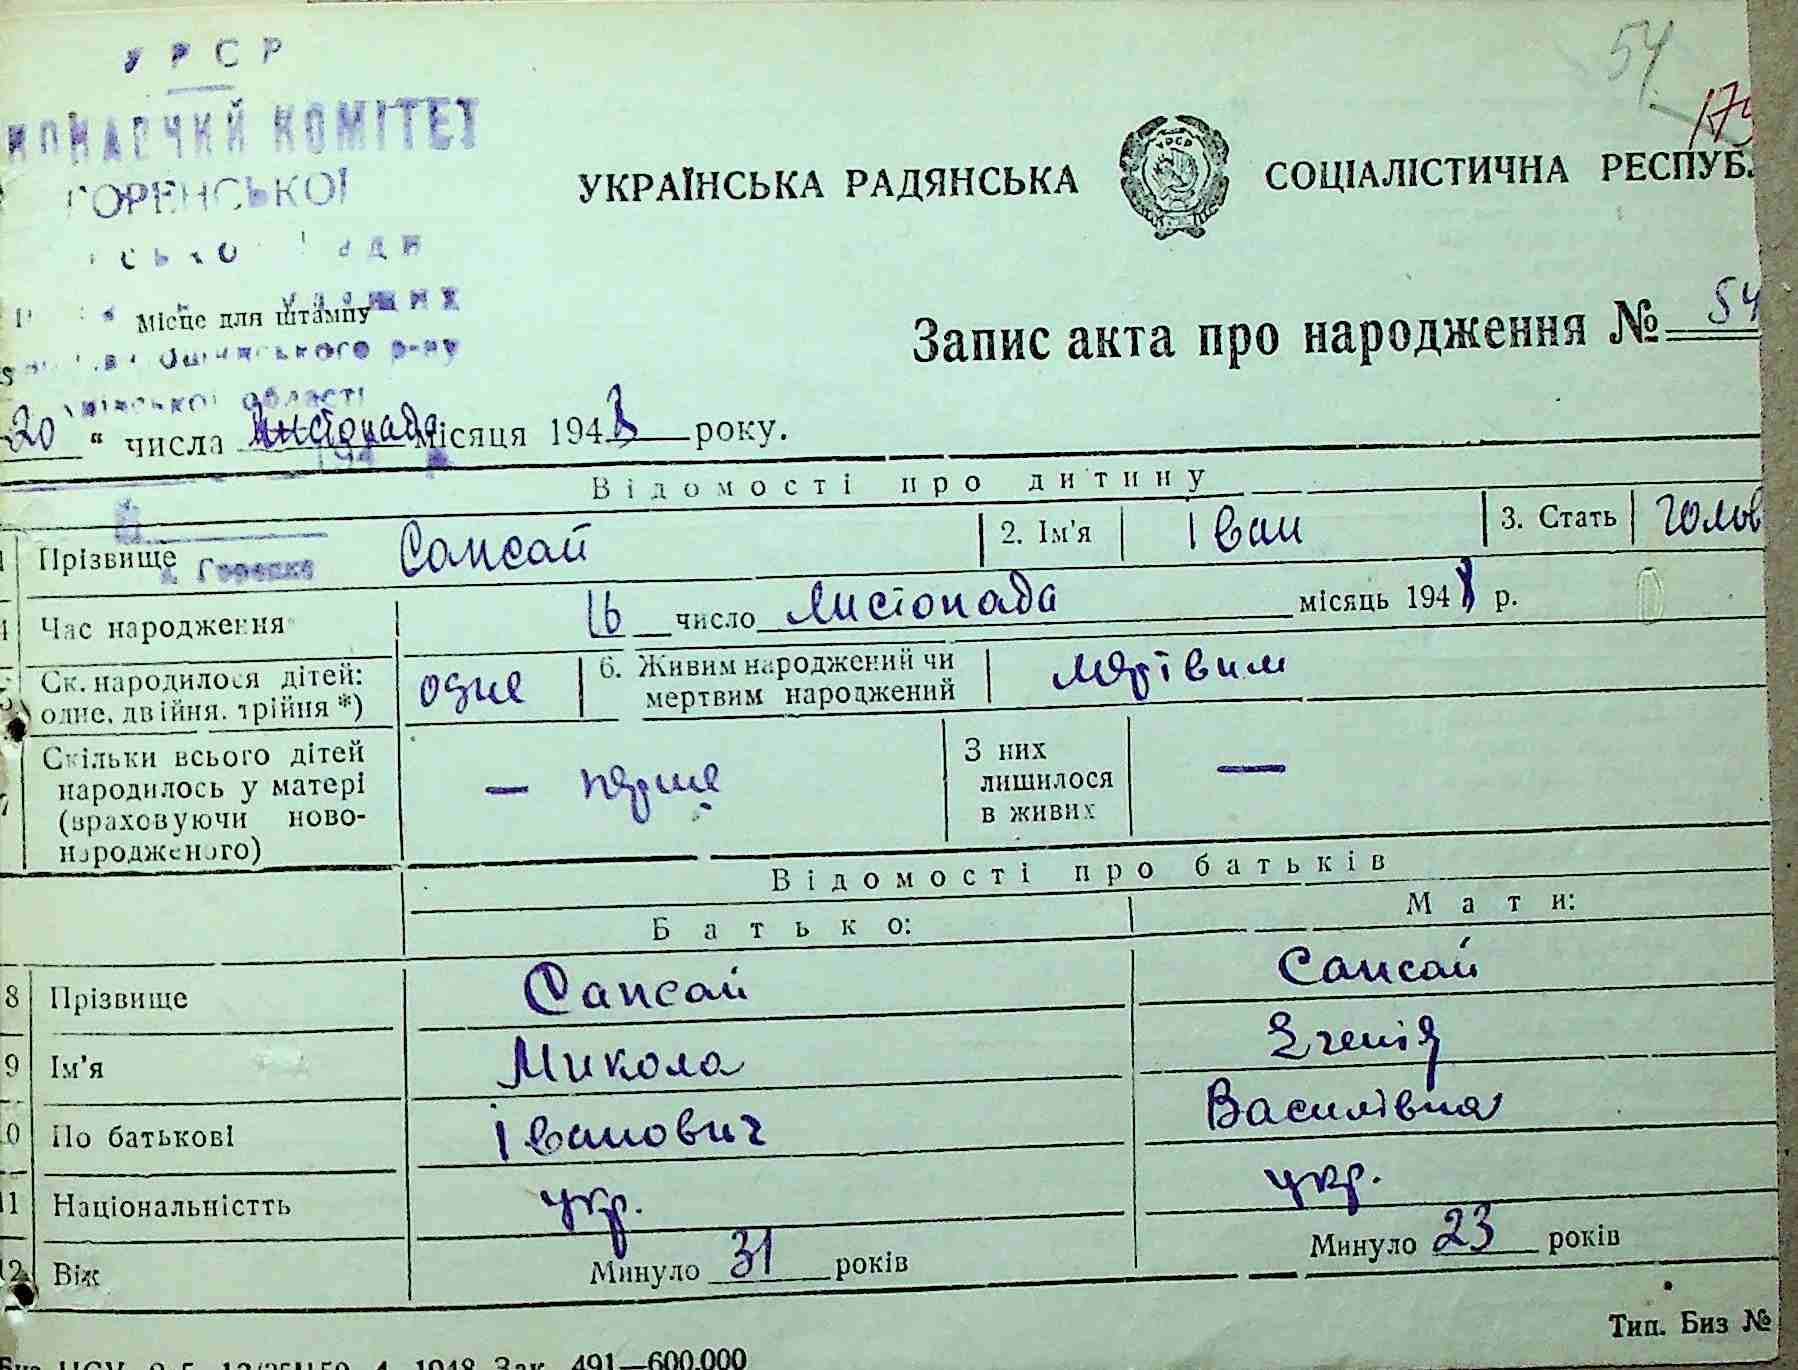 УРСР
54
КОМІТЕТ
ГОРЕНСЬКОЇ
УКРАЇНСЬКА РАДЯНСЬКА СОЦІАЛІСТИЧНА РЕСПУБ
УРСР
Місце для штампу
р-ну
області
Запис акта про народження № 54
20 " числа листопада місяця 1948 року.
Відомості про дитину
Прізвище Сапсай 2. Ім'я Іван 3. Стать чолов
Час народження 16 число листопада місяць 1948 р.
Ск. народилося дітей: одне, двійня, трійня *) одне 6. Живим народжений чи мертвим народжений мертвим
Скільки всього дітей народилось у матері (враховуючи ново-народженого) — перше З них лишилося в живих —
Відомості про батьків
Батько: Мати:
8 Прізвище Сапсай Сапсай
9 Ім'я Микола Євгенія
0 По батькові Іванович Василівна
1 Національністть укр. укр.
2 Вік Минуло 31 років Минуло 23 років
Тип. Биз №
1948 Зак. 491—600.000